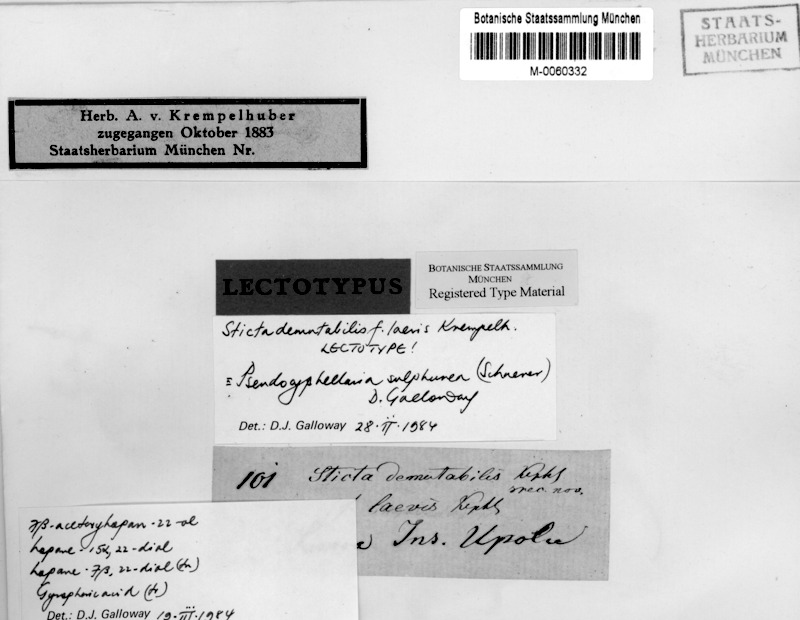 Botanische Staatssammlung München
M-0060332
STAATS-
HERBARIUM
MÜNCHEN
Herb. A. v. Krempelhuber
zugegangen Oktober 1883
Staatsherbarium München Nr.
LECTOTYPUS
BOTANISCHE STAATSSAMMLUNG
MÜNCHEN
Registered Type Material
Sticta demutabilis f. laevis Krempelh.
LECTOTYPE!
≡ Pseudocyphellaria sulphurea (Schaerer)
D. Galloway
Det.: D.J. Galloway 28·ii·1984
101 Sticta demutabilis Krphb
spec. nov.
f laevis Krphb
Ins. Upolu
7β-acetoxyhopan-22-ol
hopane-15α,22-diol
hopane-7β,22-diol (tr)
Gyrophoric acid (tr)
Det.: D.J. Galloway 19·iii·1984